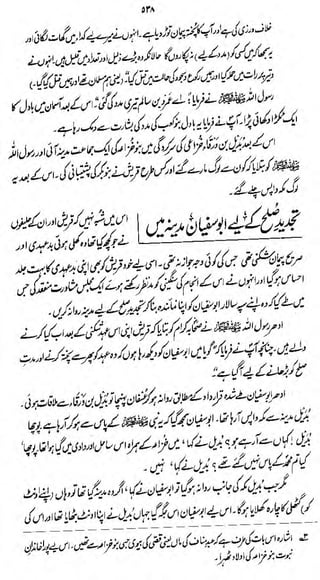 ۵۳۸
خلاف ورزی کی ہے اور آپ کا پختہ پیمان توڑ دیا ہے۔ انہوں نے میرے لیے کداء میں گھات لگائی اور
یہ سمجھا کہ میں کسی کو (مدد کے لیے) نہ پکاروں گا حالانکہ وہ بڑے ذلیل اور تعداد میں قلیل ہیں۔ انہوں نے
وتیر پر رات میں حملہ کیا اور ہمیں رکوع و سجود کی حالت میں قتل کیا“ (یعنی ہم مسلمان تھے اور ہمیں قتل کیا گیا۔)
رسول اللہ ﷺ نے فرمایا: اے عمرو بن سالم تیری مدد کی گئی“ اس کے بعد آسمان میں بادل کا
ایک ٹکڑا دکھائی پڑا۔ آپؐ نے فرمایا یہ بادل بنو کعب کی مدد کی بشارت سے دمک رہا ہے۔
اس کے بعد بدیل بن ورقاء خزاعی کی سرکردگی میں بنو خزاعہ کی ایک جماعت مدینہ آئی اور رسول اللہ
ﷺ کو بتلایا کہ کون سے لوگ مارے گئے اور کس طرح قریش نے بنو بکر کی پشتیبانی کی۔ اس کے بعد یہ
لوگ مکہ واپس چلے گئے۔
تجدید صلح کے لیے ابو سفیان مدینہ میں
اس میں شبہ نہیں کہ قریش اور ان کے حلیفوں
نے جو کچھ کیا تھا وہ کھلی ہوئی بدعہدی اور
صریح پیمان شکنی تھی جس کی کوئی وجہ جواز نہ تھی۔ اسی لیے خود قریش کو بھی اپنی بدعہدی کا بہت جلد
احساس ہو گیا اور انہوں نے اس کے انجام کی سنگینی کو مدنظر رکھتے ہوئے ایک مجلس مشاورت منعقد کی جس
میں طے کیا کہ وہ اپنے سپہ سالار ابو سفیان کو اپنا نمائندہ بنا کر تجدید صلح کے لیے مدینہ روانہ کریں۔
ادھر رسول اللہ ﷺ نے صحابہ کرام کو بتلایا کہ قریش اپنی اس عہد شکنی کے بعد اب کیا کرنے
والے ہیں۔ چنانچہ آپؐ نے فرمایا کہ ”گویا میں ابو سفیان کو دیکھ رہا ہوں کہ وہ عہد کو پھر سے پختہ کرنے اور مدت
صلح کو بڑھانے کے لیے آ گیا ہے“
ادھر ابو سفیان طے شدہ قرارداد کے مطابق روانہ ہو کر عسفان پہنچا تو بدیل بن ورقاء سے ملاقات ہوئی۔
بدیل مدینہ سے مکہ واپس آ رہا تھا۔ ابو سفیان سمجھ گیا کہ یہ نبی ﷺ کے پاس سے ہو کر آ رہا ہے پوچھا
بدیل! کہاں سے آ رہے ہو؟ بدیل نے کہا، میں خزاعہ کے ہمراہ اس ساحل اور وادی میں گیا ہوا تھا، پوچھا‘
کیا تم محمد کے پاس نہیں گئے تھے؟ بدیل نے کہا، ”نہیں۔
مگر جب بدیل مکہ کی جانب روانہ ہو گیا تو ابو سفیان نے کہا، اگر وہ مدینہ گیا تھا تو وہاں (اپنے اونٹ
کو) گٹھلی کا چارہ کھلایا ہو گا۔ اس لیے ابو سفیان اس جگہ گیا جہاں بدیل نے اپنا اونٹ بٹھایا تھا اور اس کی
اشارہ اس بات کی طرف ہے کہ عبد مناف کی ماں یعنی قصی کی بیوی حبی بنو خزاعہ سے تھیں۔ اس لیے پورا خاندان
نبوت بنو خزاعہ کی اولاد ٹھہرا۔